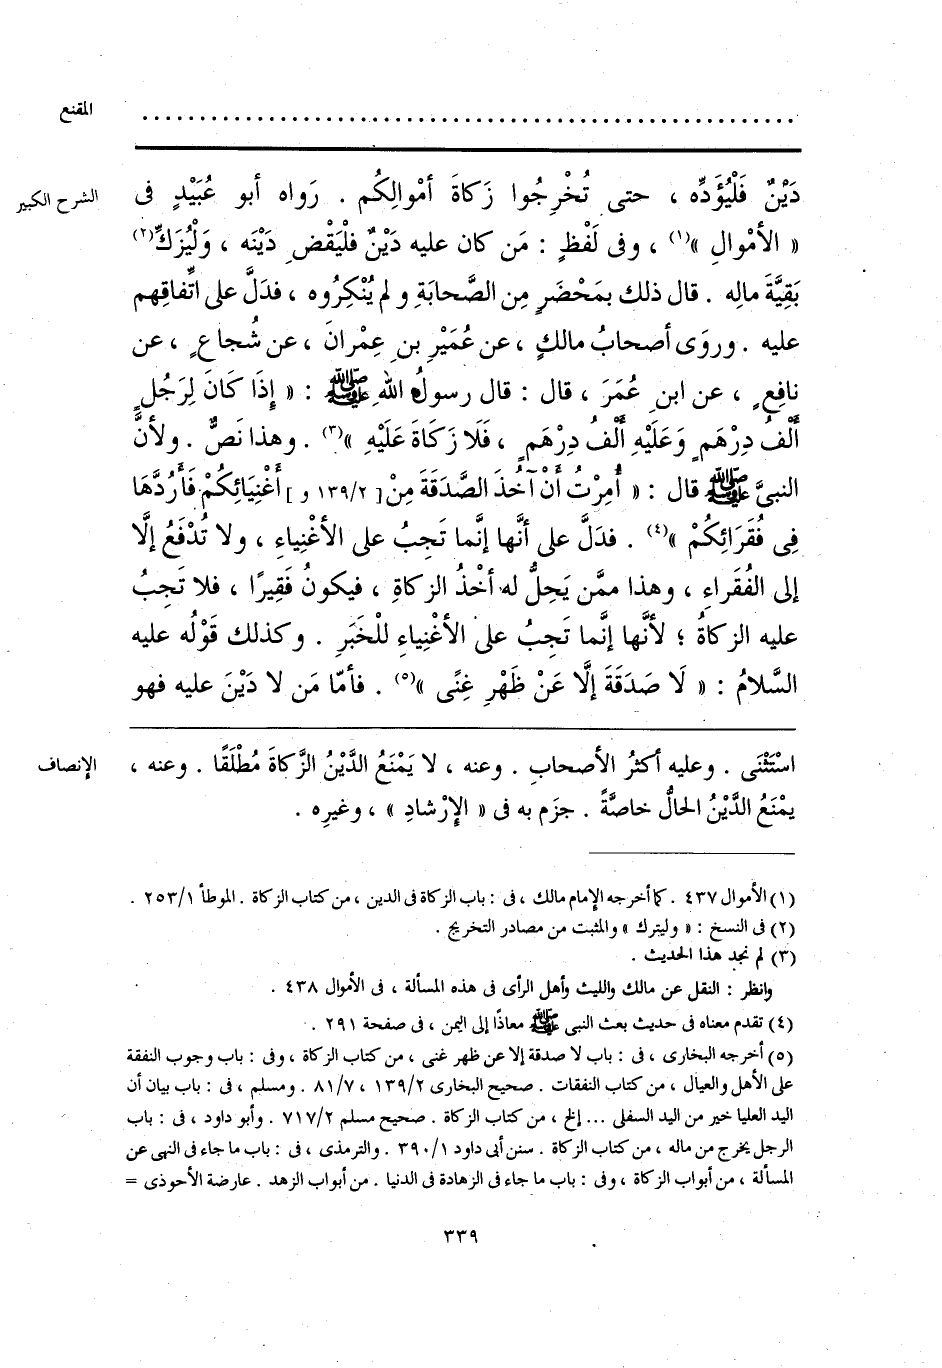 المقنع
. . . . . . . . . . . . . . . . . . . . . . . . . . . . . . . . . . . . . . . . . . . . . . . . . . . . . .
الشرح الكبير
دَيْنٌ فَلْيُؤَدِّه ، حتى تُخْرِجُوا زَكاةَ أمْوالِكُم . رَواه أبو عُبَيْدٍ فى
« الأمْوالِ »(١) ، وفى لَفْظٍ : مَن كان عليه دَيْنٌ فلْيَقْضِ دَيْنَه ، وَلْيُزَكِّ(٢)
بَقِيَّةَ مالِه . قال ذلك بمَحْضَرٍ مِن الصَّحابَةِ ولم يُنْكِرُوه ، فدَلَّ على اتِّفاقِهم
عليه . وروَى أصحابُ مالكٍ ، عن عُمَيْرِ بنِ عِمْرانَ ، عن شُجاعٍ ، عن
نافِعٍ ، عن ابنِ عُمَرَ ، قال : قال رسولُ اللهِ ﷺ : « إِذَا كَانَ لِرَجُلٍ
أَلْفُ دِرْهَمٍ وَعَلَيْهِ أَلْفُ دِرْهَمٍ ، فَلَا زَكَاةَ عَلَيْهِ »(٣) . وهذا نَصٌّ . ولأنَّ
النبىَّ ﷺ قال : « أُمِرْتُ أَنْ آخُذَ الصَّدَقَةَ مِنْ [ ١٣٩/٢ و ] أَغْنِيَائِكُمْ فَأَرُدَّهَا
فِى فُقَرَائِكُمْ »(٤) . فدَلَّ على أنَّها إنَّما تَجِبُ على الأغْنِياءِ ، ولا تُدْفَعُ إلَّا
إلى الفُقَراءِ ، وهذا ممَّن يَحِلُّ له أخْذُ الزكاةِ ، فيكونُ فَقِيرًا ، فلا تَجِبُ
عليه الزكاةُ ؛ لأنَّها إنَّما تَجِبُ على الأغْنِياءِ للْخَبَرِ . وكذلك قَوْلُه عليه
السَّلامُ : « لَا صَدَقَةَ إِلَّا عَنْ ظَهْرِ غِنًى »(٥) . فأمّا مَن لا دَيْنَ عليه فهو
الإنصاف
اسْتَثْنَى . وعليه أكثرُ الأصحابِ . وعنه ، لا يَمْنَعُ الدَّيْنُ الزَّكاةَ مُطْلَقًا . وعنه ،
يمْنَعُ الدَّيْنُ الحالُّ خاصَّةً . جزَم به فى « الإِرْشادِ » ، وغيرِه .
(١) الأموال ٤٣٧ . كما أخرجه الإمام مالك ، فى : باب الزكاة فى الدين ، من كتاب الزكاة . الموطأ ٢٥٣/١ .
(٢) فى النسخ : « وليترك » والمثبت من مصادر التخريج .
(٣) لم نجد هذا الحديث .
وانظر : النقل عن مالك والليث وأهل الرأى فى هذه المسألة ، فى الأموال ٤٣٨ .
(٤) تقدم معناه فى حديث بعث النبى ﷺ معاذًا إلى اليمن ، فى صفحة ٢٩١ .
(٥) أخرجه البخارى ، فى : باب لا صدقة إلا عن ظهر غنى ، من كتاب الزكاة ، وفى : باب وجوب النفقة
على الأهل والعيال ، من كتاب النفقات . صحيح البخارى ١٣٩/٢ ، ٨١/٧ . ومسلم ، فى : باب بيان أن
اليد العليا خير من اليد السفلى ... إلخ ، من كتاب الزكاة . صحيح مسلم ٧١٧/٢ . وأبو داود ، فى : باب
الرجل يخرج من ماله ، من كتاب الزكاة . سنن أبى داود ٣٩٠/١ . والترمذى ، فى : باب ما جاء فى النهى عن
المسألة ، من أبواب الزكاة ، وفى : باب ما جاء فى الزهادة فى الدنيا . من أبواب الزهد . عارضة الأحوذى =
٣٣٩